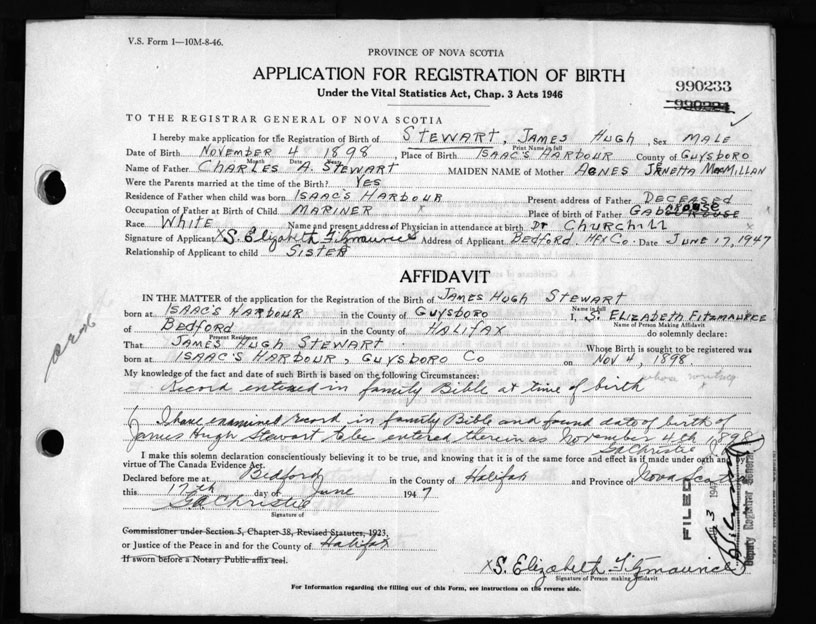 V.S. Form 1—10M-8-46.
PROVINCE OF NOVA SCOTIA
APPLICATION FOR REGISTRATION OF BIRTH
990233
Under the Vital Statistics Act, Chap. 3 Acts 1946
990224
TO THE REGISTRAR GENERAL OF NOVA SCOTIA
I hereby make application for the Registration of Birth of STEWART, JAMES HUGH, Sex MALE
Print Name in full
Date of Birth NOVEMBER 4 1898, Place of Birth ISAAC'S HARBOUR County of GUYSBORO
Month Date Year
Name of Father CHARLES A. STEWART MAIDEN NAME of Mother AGNES JANETTA MACMILLAN
Were the Parents married at the time of the Birth? YES
Residence of Father when child was born ISAAC'S HARBOUR Present address of Father DECEASED
Occupation of Father at Birth of Child MARINER Place of birth of Father
Race WHITE Name and present address of Physician in attendance at birth DR CHURCHILL
Signature of Applicant X S. Elizabeth Fitzmaurice Address of Applicant BEDFORD HFX CO. Date JUNE 17, 1947
Relationship of Applicant to child SISTER
AFFIDAVIT
IN THE MATTER of the application for the Registration of the Birth of JAMES HUGH STEWART
Name in full
born at ISAAC'S HARBOUR in the County of GUYSBORO I, S. ELIZABETH FITZMAURICE
Name of Person Making Affidavit
of BEDFORD in the County of HALIFAX do solemnly declare:
Present Residence
That JAMES HUGH STEWART Whose Birth is sought to be registered was
born at ISAAC'S HARBOUR, GUYSBORO CO on NOV 4, 1898.
My knowledge of the fact and date of such Birth is based on the following Circumstances:
Record entered in family Bible at time of birth
I have examined record in family Bible and found date of birth of
James Hugh Stewart to be entered therein as November 4th, 1898
GA Christie
I make this solemn declaration conscientiously believing it to be true, and knowing that it is of the same force and effect as if made under oath and
virtue of The Canada Evidence Act.
Declared before me at Bedford in the County of Halifax and Province of Nova Scotia
this 17th day of June 1947
GA Christie
Signature of
Commissioner under Section 5, Chapter 38, Revised Statutes, 1923,
or Justice of the Peace in and for the County of Halifax
If sworn before a Notary Public affix seal.
X S. Elizabeth Fitzmaurice
Signature of Person making Affidavit
For Information regarding the filling out of this Form, see instructions on the reverse side.
FILED
Deputy Registrar General